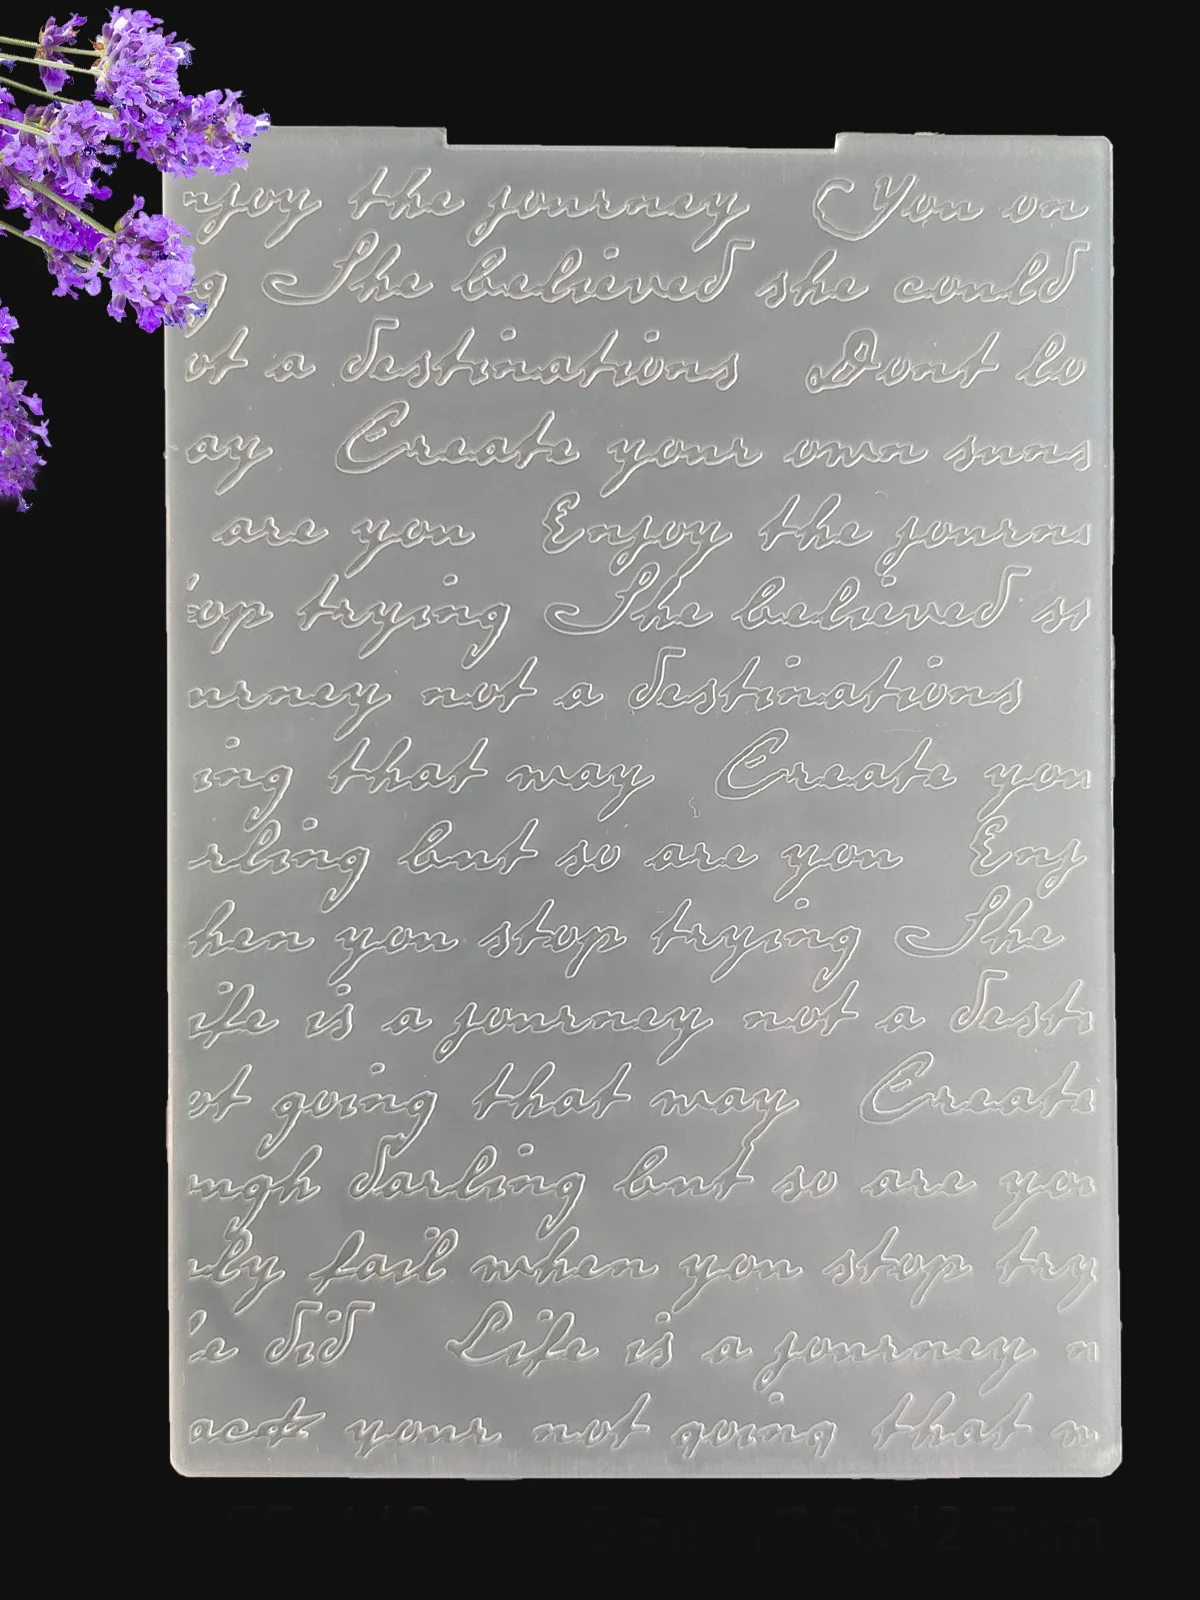 njoy the journey You on
g She believed she could
ot a destinations Dont lo
ay Create your own suns
are you Enjoy the journe
op trying She believed s
urney not a destinations
ing that may Create you
rling but so are you Enj
hen you stop trying She
ife is a journey not a dest
ot going that may Create
ugh darling but so are you
ly fail when you stop try
e did Life is a journey n
back your not going that m
Size: 17.5x12.5cm